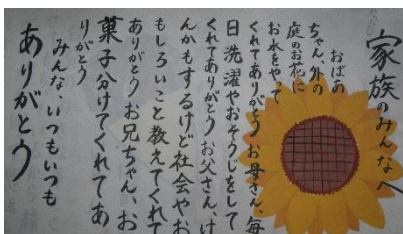 家族のみんなへ
おばあ
ちゃん外の
庭のお花に
お水をやって
くれてありがとうお母さん、毎
日洗濯やおそうじをして
くれてありがとうお父さん、け
んかもするけど社会やお
もしろいこと教えてくれて
ありがとうお兄ちゃん、お
菓子分けてくれてあ
りがとう
みんな、いつもいつも
ありがとう